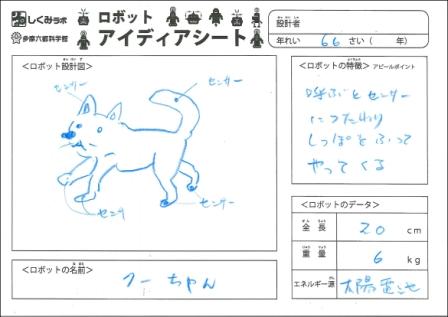 しくみラボ
多摩六都科学館
ロボット
アイディアシート
設計者
年れい 66 さい( 年)
<ロボット設計図>
センサー
センサー
センサ
センサー
<ロボットの特徴> アピールポイント
呼ぶとセンサー
につたわり
しっぽをふって
やってくる
<ロボットのデータ>
全長 20 cm
重量 6 kg
エネルギー源 太陽電池
<ロボットの名前>
クーちゃん